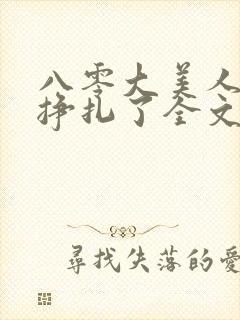 八零大美人
掙扎了全文
尋找失落的愛